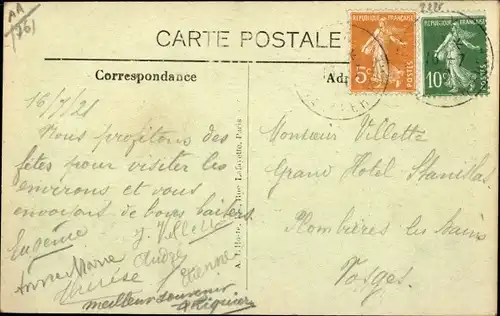 AA
1261
2225
CARTE POSTALE
Correspondance
REPUBLIQUE FRANÇAISE
5c
POSTES
REPUBLIQUE FRANÇAISE
10c
POSTES
16/7/21
Nous profitons des
fêtes pour visiter les
environs et vous
envoyons de bons baisers
Eugénie J. Villette
Anne Marie André
Thérèse Etienne
meilleur souvenir
Rue Lafayette, Paris
Monsieur Villette
Grand Hotel Stanislas
Plombières les bains
Vosges.